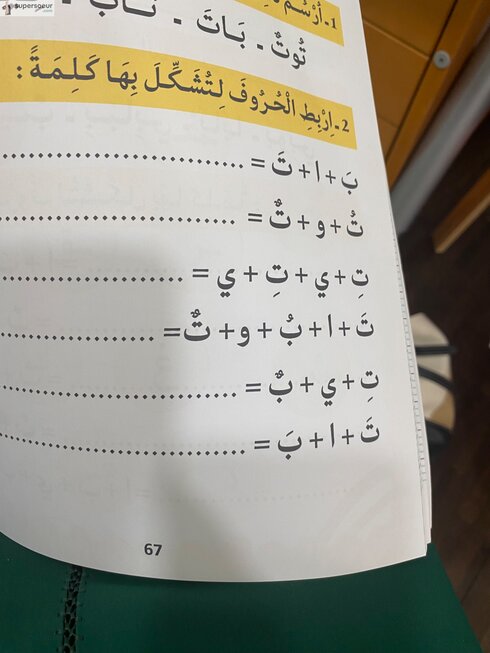 supersoeur
1. اُرْسُمْ
تُوتٌ - بَاتَ - تَابَ -
2. اِرْبِطِ الْحُرُوفَ لِتُشَكِّلَ بِهَا كَلِمَةً :
بَ + ا + تَ = ........................
تُ + و + تٌ = ........................
تِ + ي + تِ + ي = ........................
تَ + ا + بُ + و + تٌ = ........................
تِ + ي + بٌ = ........................
تَ + ا + بَ = ........................
67